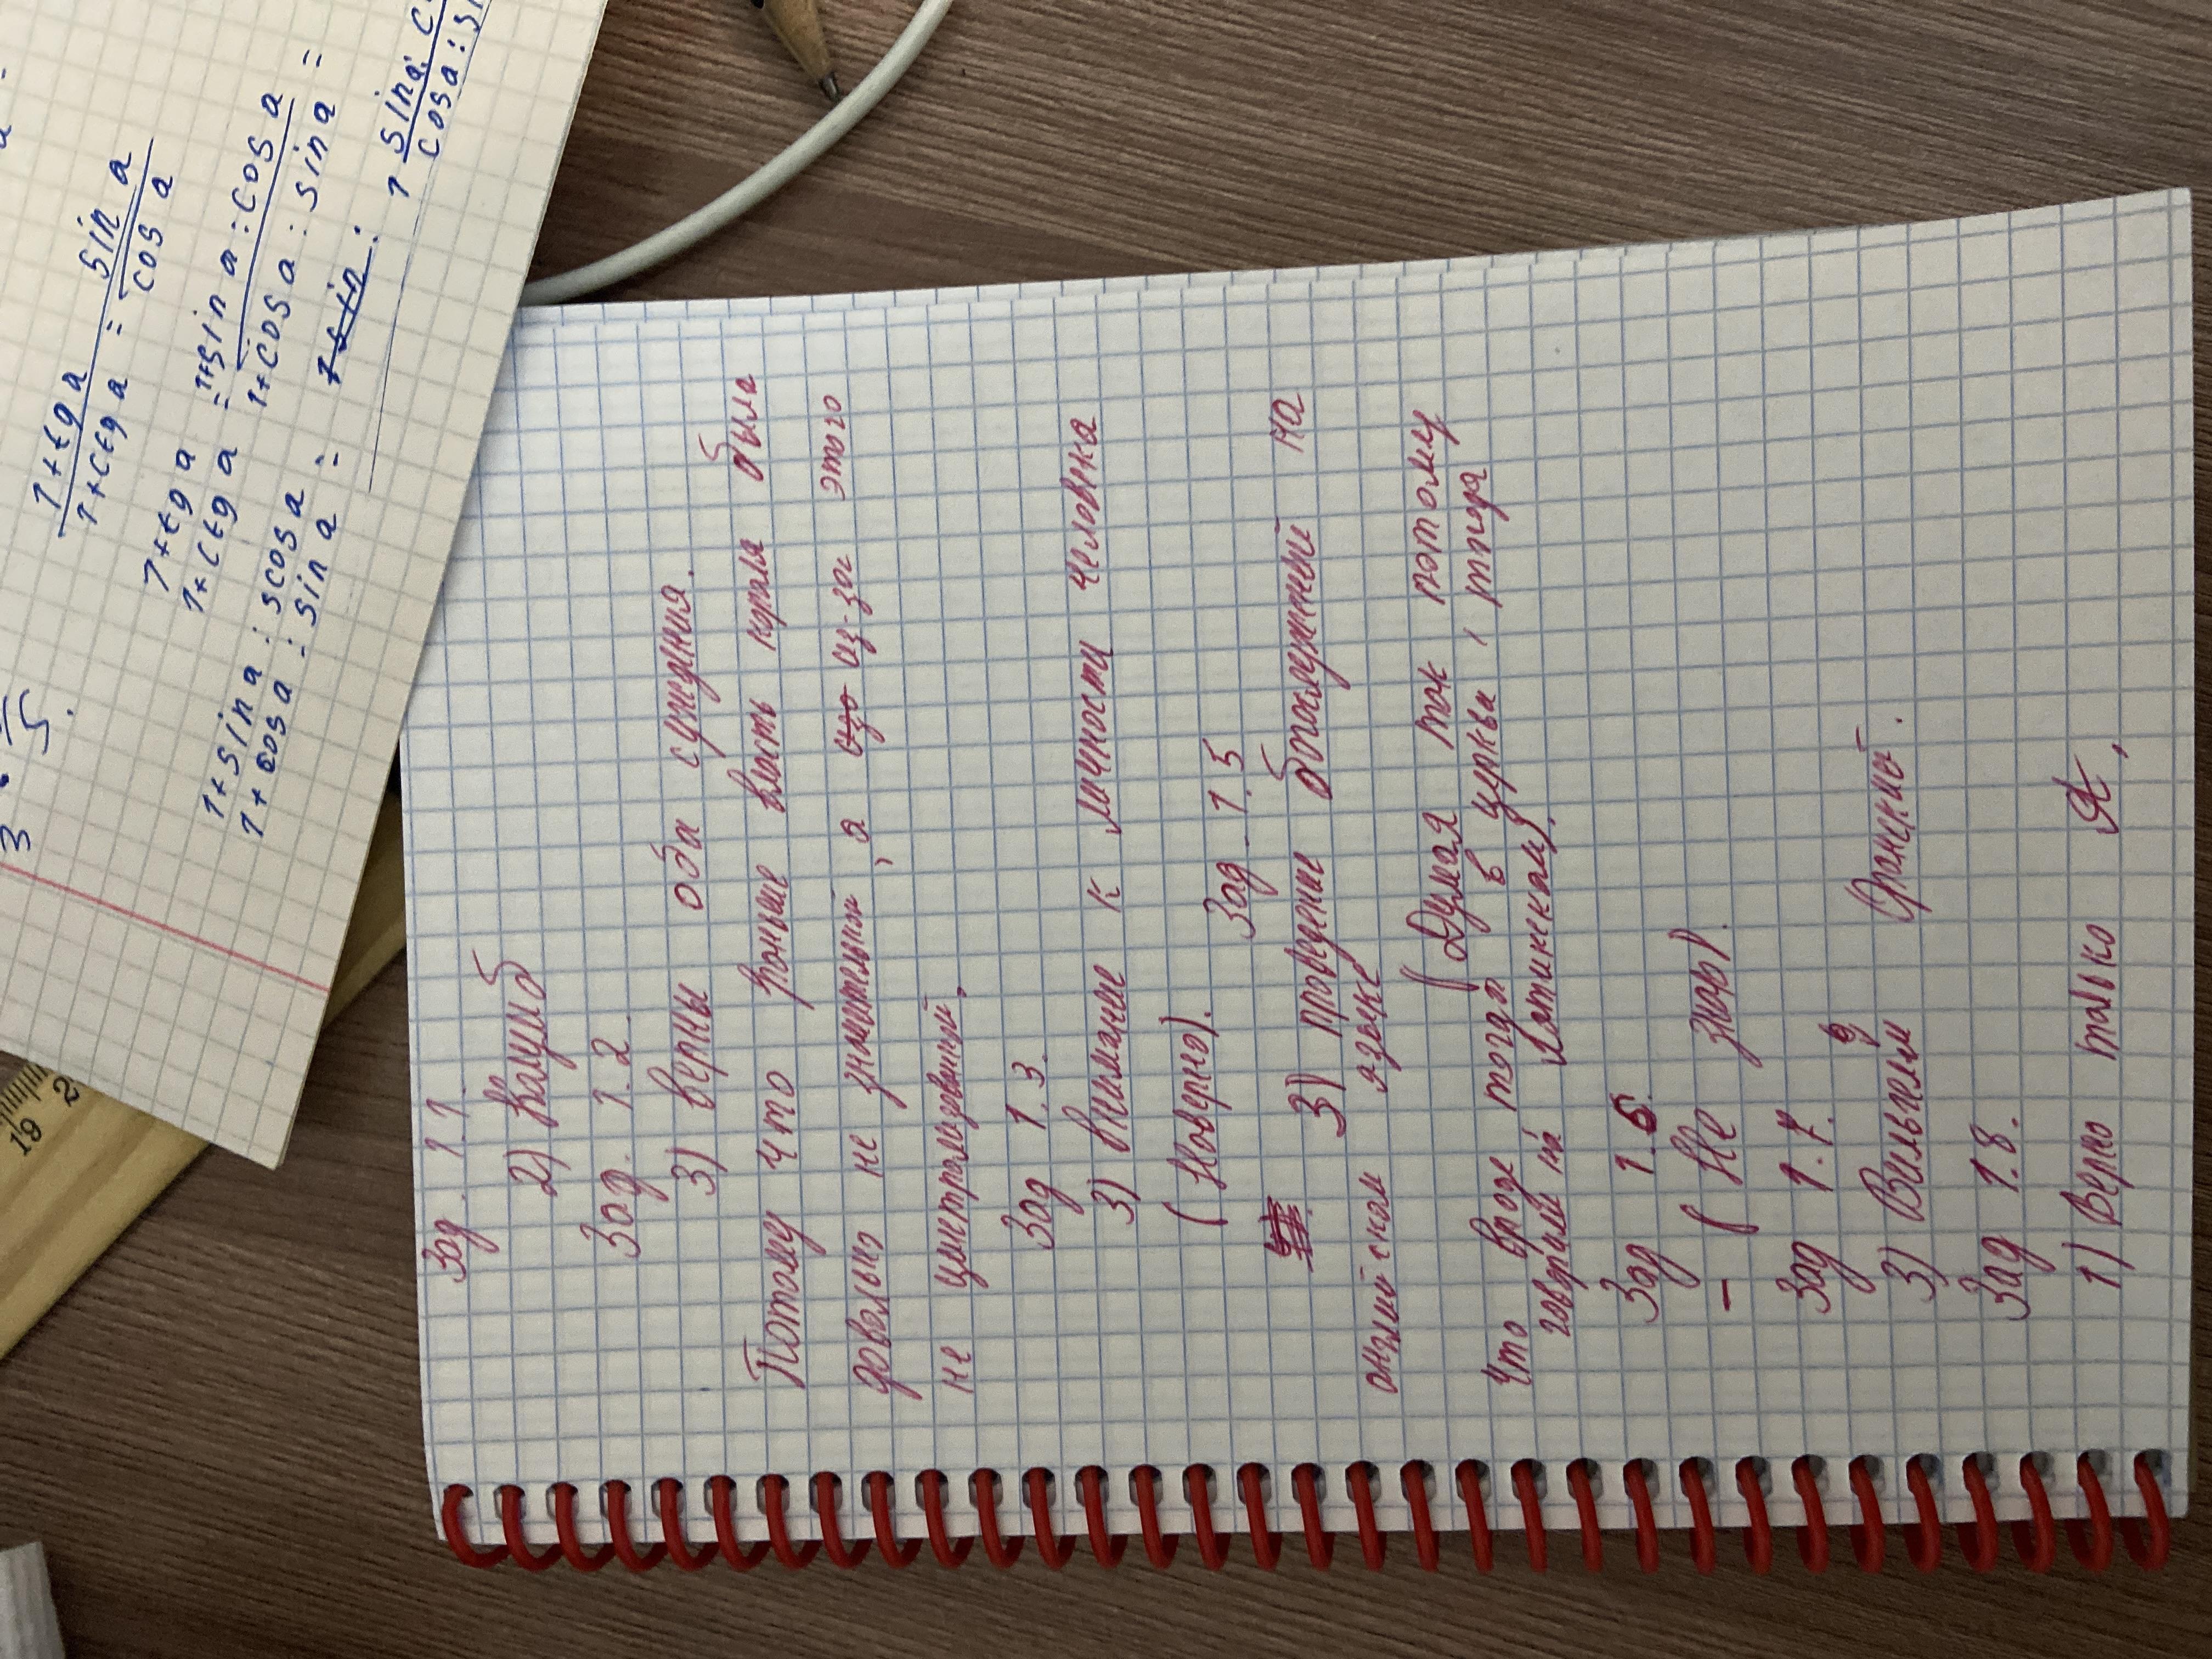 Зад. 1.1
2) Якацуиб
Зад. 1.2
3) верны оба суждения.
Потому что раньше власть короля была
довольно не значительный, а из-за этого
не централизованный.
Зад 1.3.
3) Внимание к личности человека
(Наверно).
Зад. 1.5
3) проведение богослужений на
английском языке
(Думая так потому
что вроде тогда в церквы, тогда
говорили на латинском).
Зад 1.6.
- (Не знаю).
Зад 1.7.
3) Вильгельм Оранский.
Зад 1.8.
1) Верно только А,
1+tg a
1+ctg a = sin a
cos a
1+tg a
1+ctg a = 1+sin a : cos a
1+cos a : sin a =
1+sin a : cos a
1+cos a : sin a =
1 sin a : c
cos a : si
3
5.
19 2